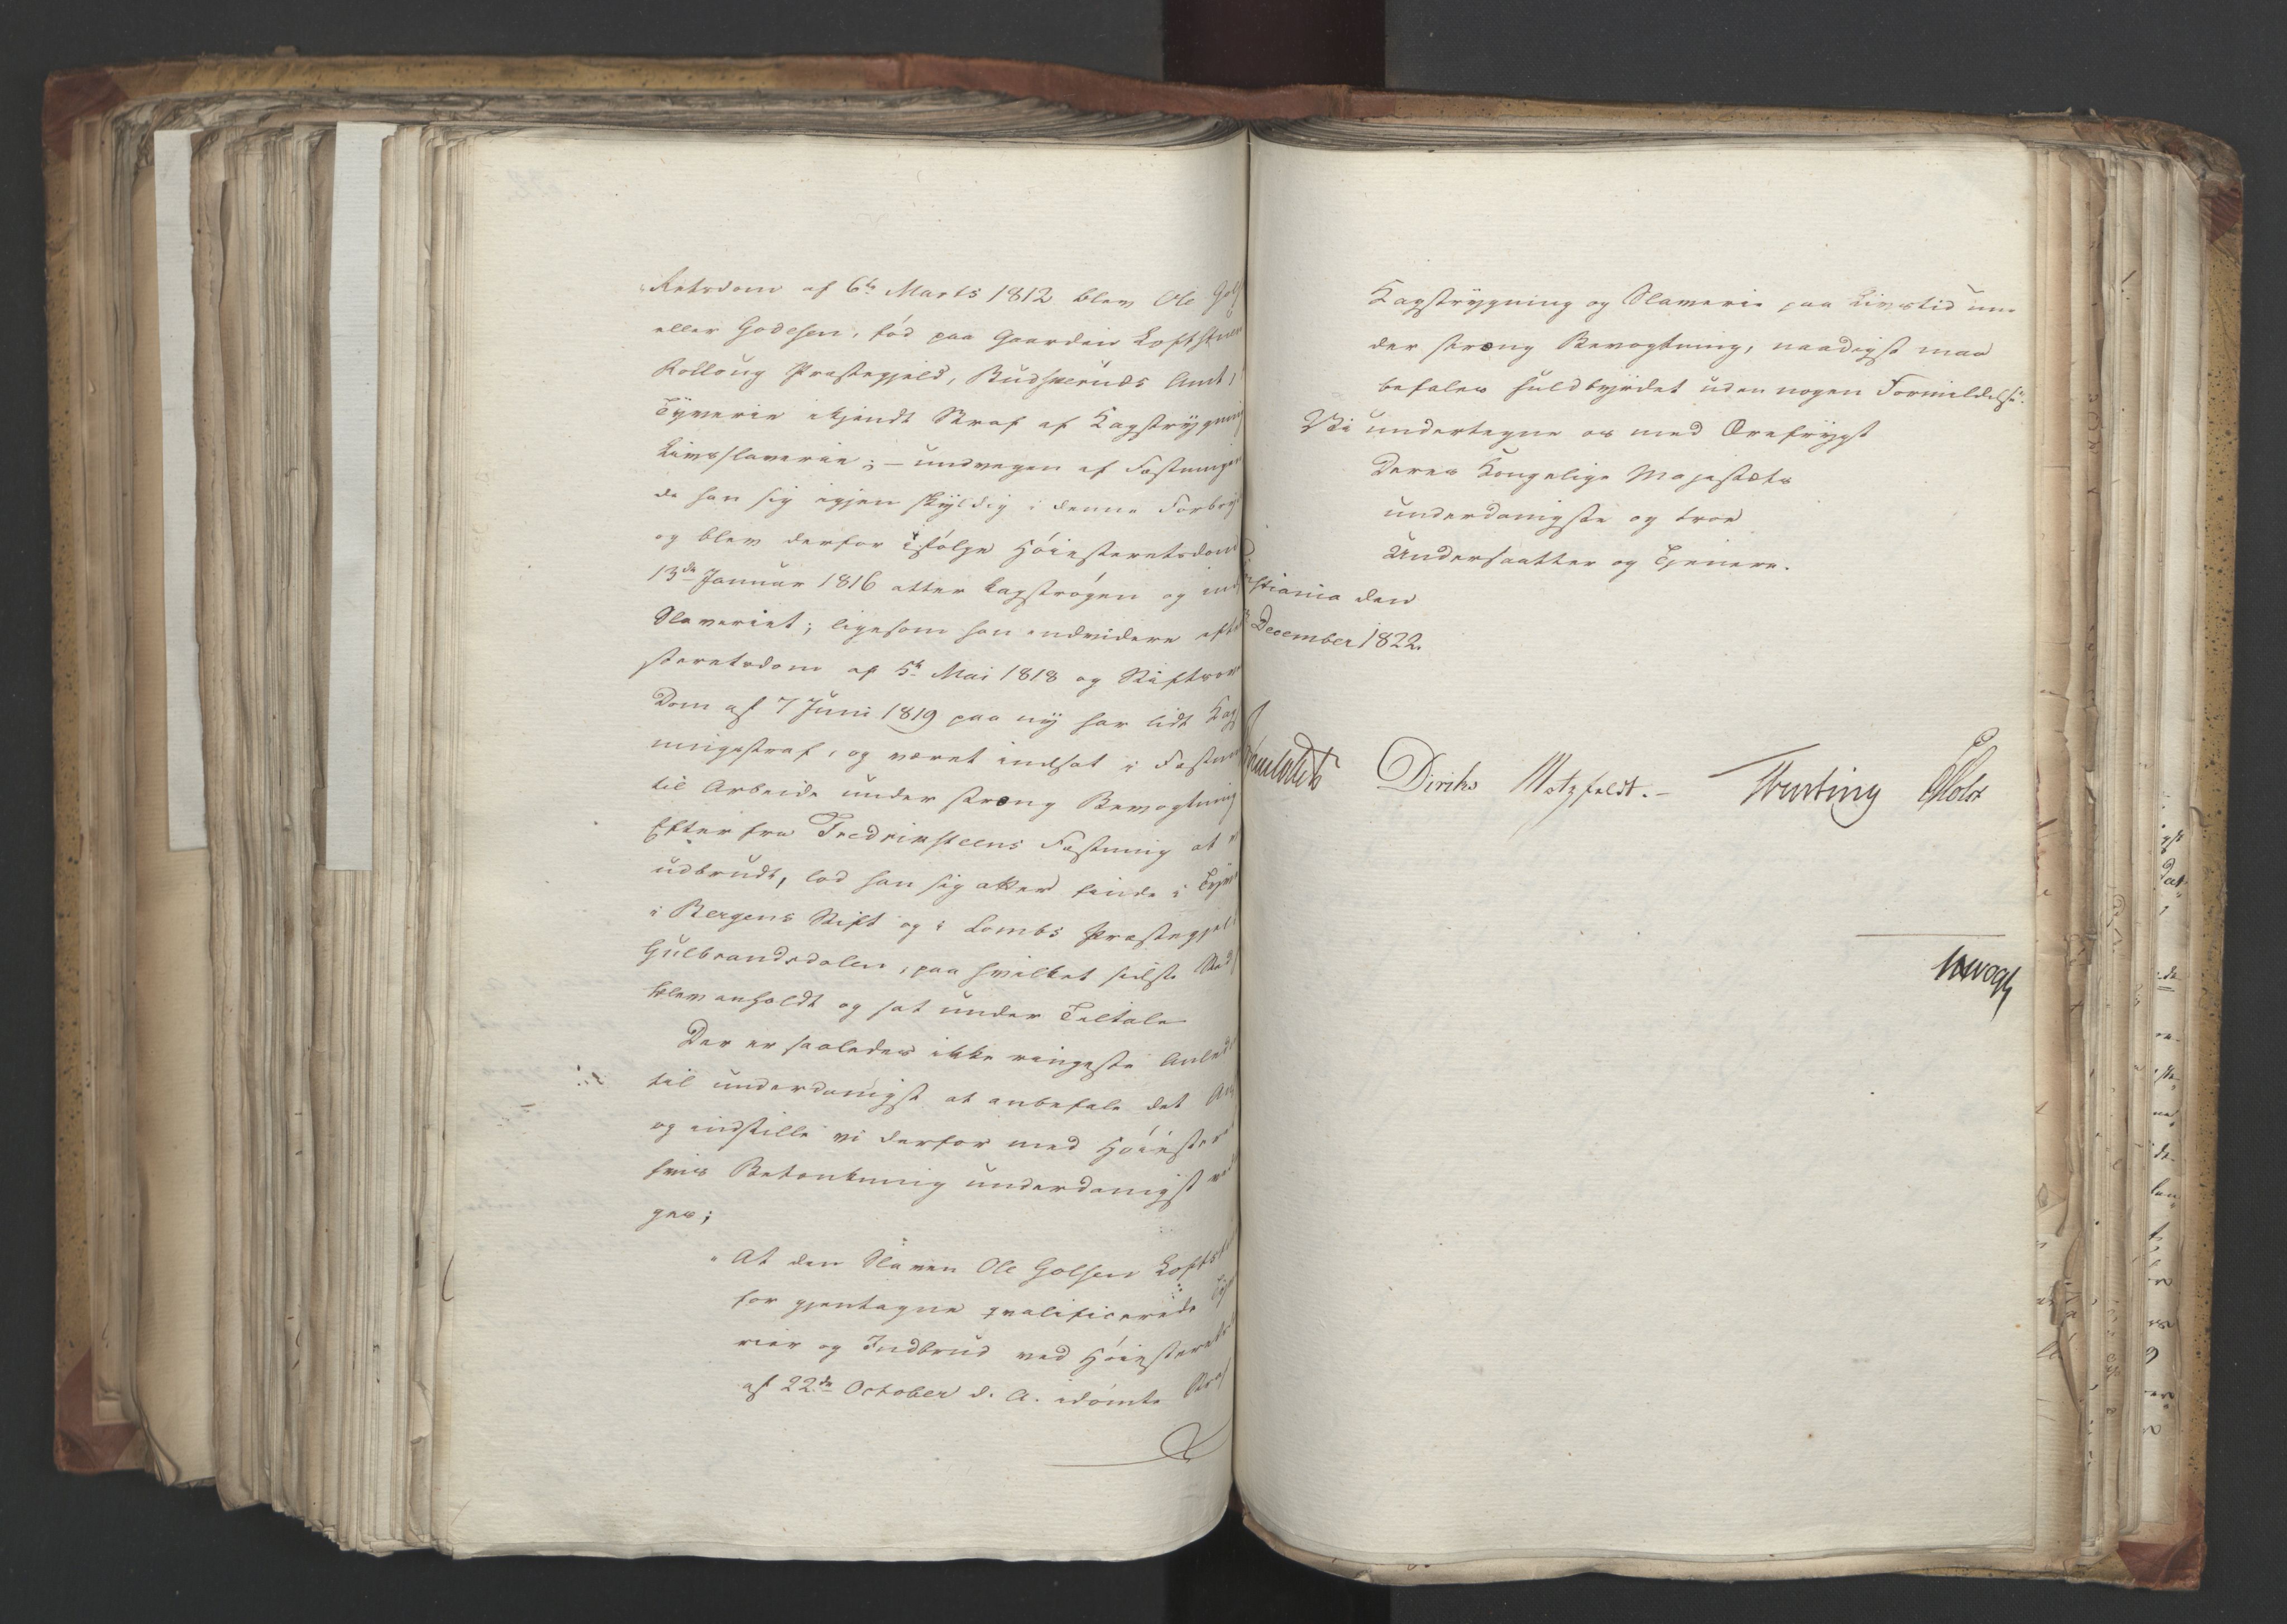 Retsdom af 6te Marts 1812 blev Ole Gol
eller Godesen, fød paa Gaarden Loftstuen
Rolloug Præstegjeld, Budskeruds Amt,
Tyverie ikjendt Straf af Kagstrygning
Livsslaverie; – undvegen af Fæstningen
de han sig igjen skyldig i denne Forbry
og blev derfor ifølge Høiesteretsdom
13de Januar 1816 atter kagstrøgen og ind
Slaveriet; ligesom han endvidere efter
steretsdom af 5te Mai 1818 og Stiftsover
Dom af 7 Juni 1819 paa ny har lidt Kag
ningsstraf, og været indsat i Fæstn
til Arbeide under stræng Bevogtning
Efter fra Fredriksteens Fæstning at
udbrudt, lod han sig atter finde i Tyve
i Bergens Stift og i Lombs Præstegjeld
Gulbrandsdalen, paa hvilket sidste Sted
blev anholdt og sat under Tiltale
Der er saaledes ikke ringeste Anled
til underdanigst at anbefale det
og indstille vi derfor med Høiestere
hvis Betænkning underdanigst ved
ges;
"At den Slaven Ole Golsen Loftst
for gjentagne qvalificerede Tyve
rier og Indbrud ved Høiesterets
af 22de October d. A. idømte Straf
Kagstrygning og Slaverie paa Livstid un
der stræng Bevogtning, naadigst maa
befales fuldbyrdet uden nogen Formildelse".
Vi undertegne os med Ærefrygt
Deres Kongelige Majestæts
underdanigste og troe
Undersaatter og Tjenere.
stiania den
December 1822.
Diriks Motzfeldt. Treschow Holst
Vogt